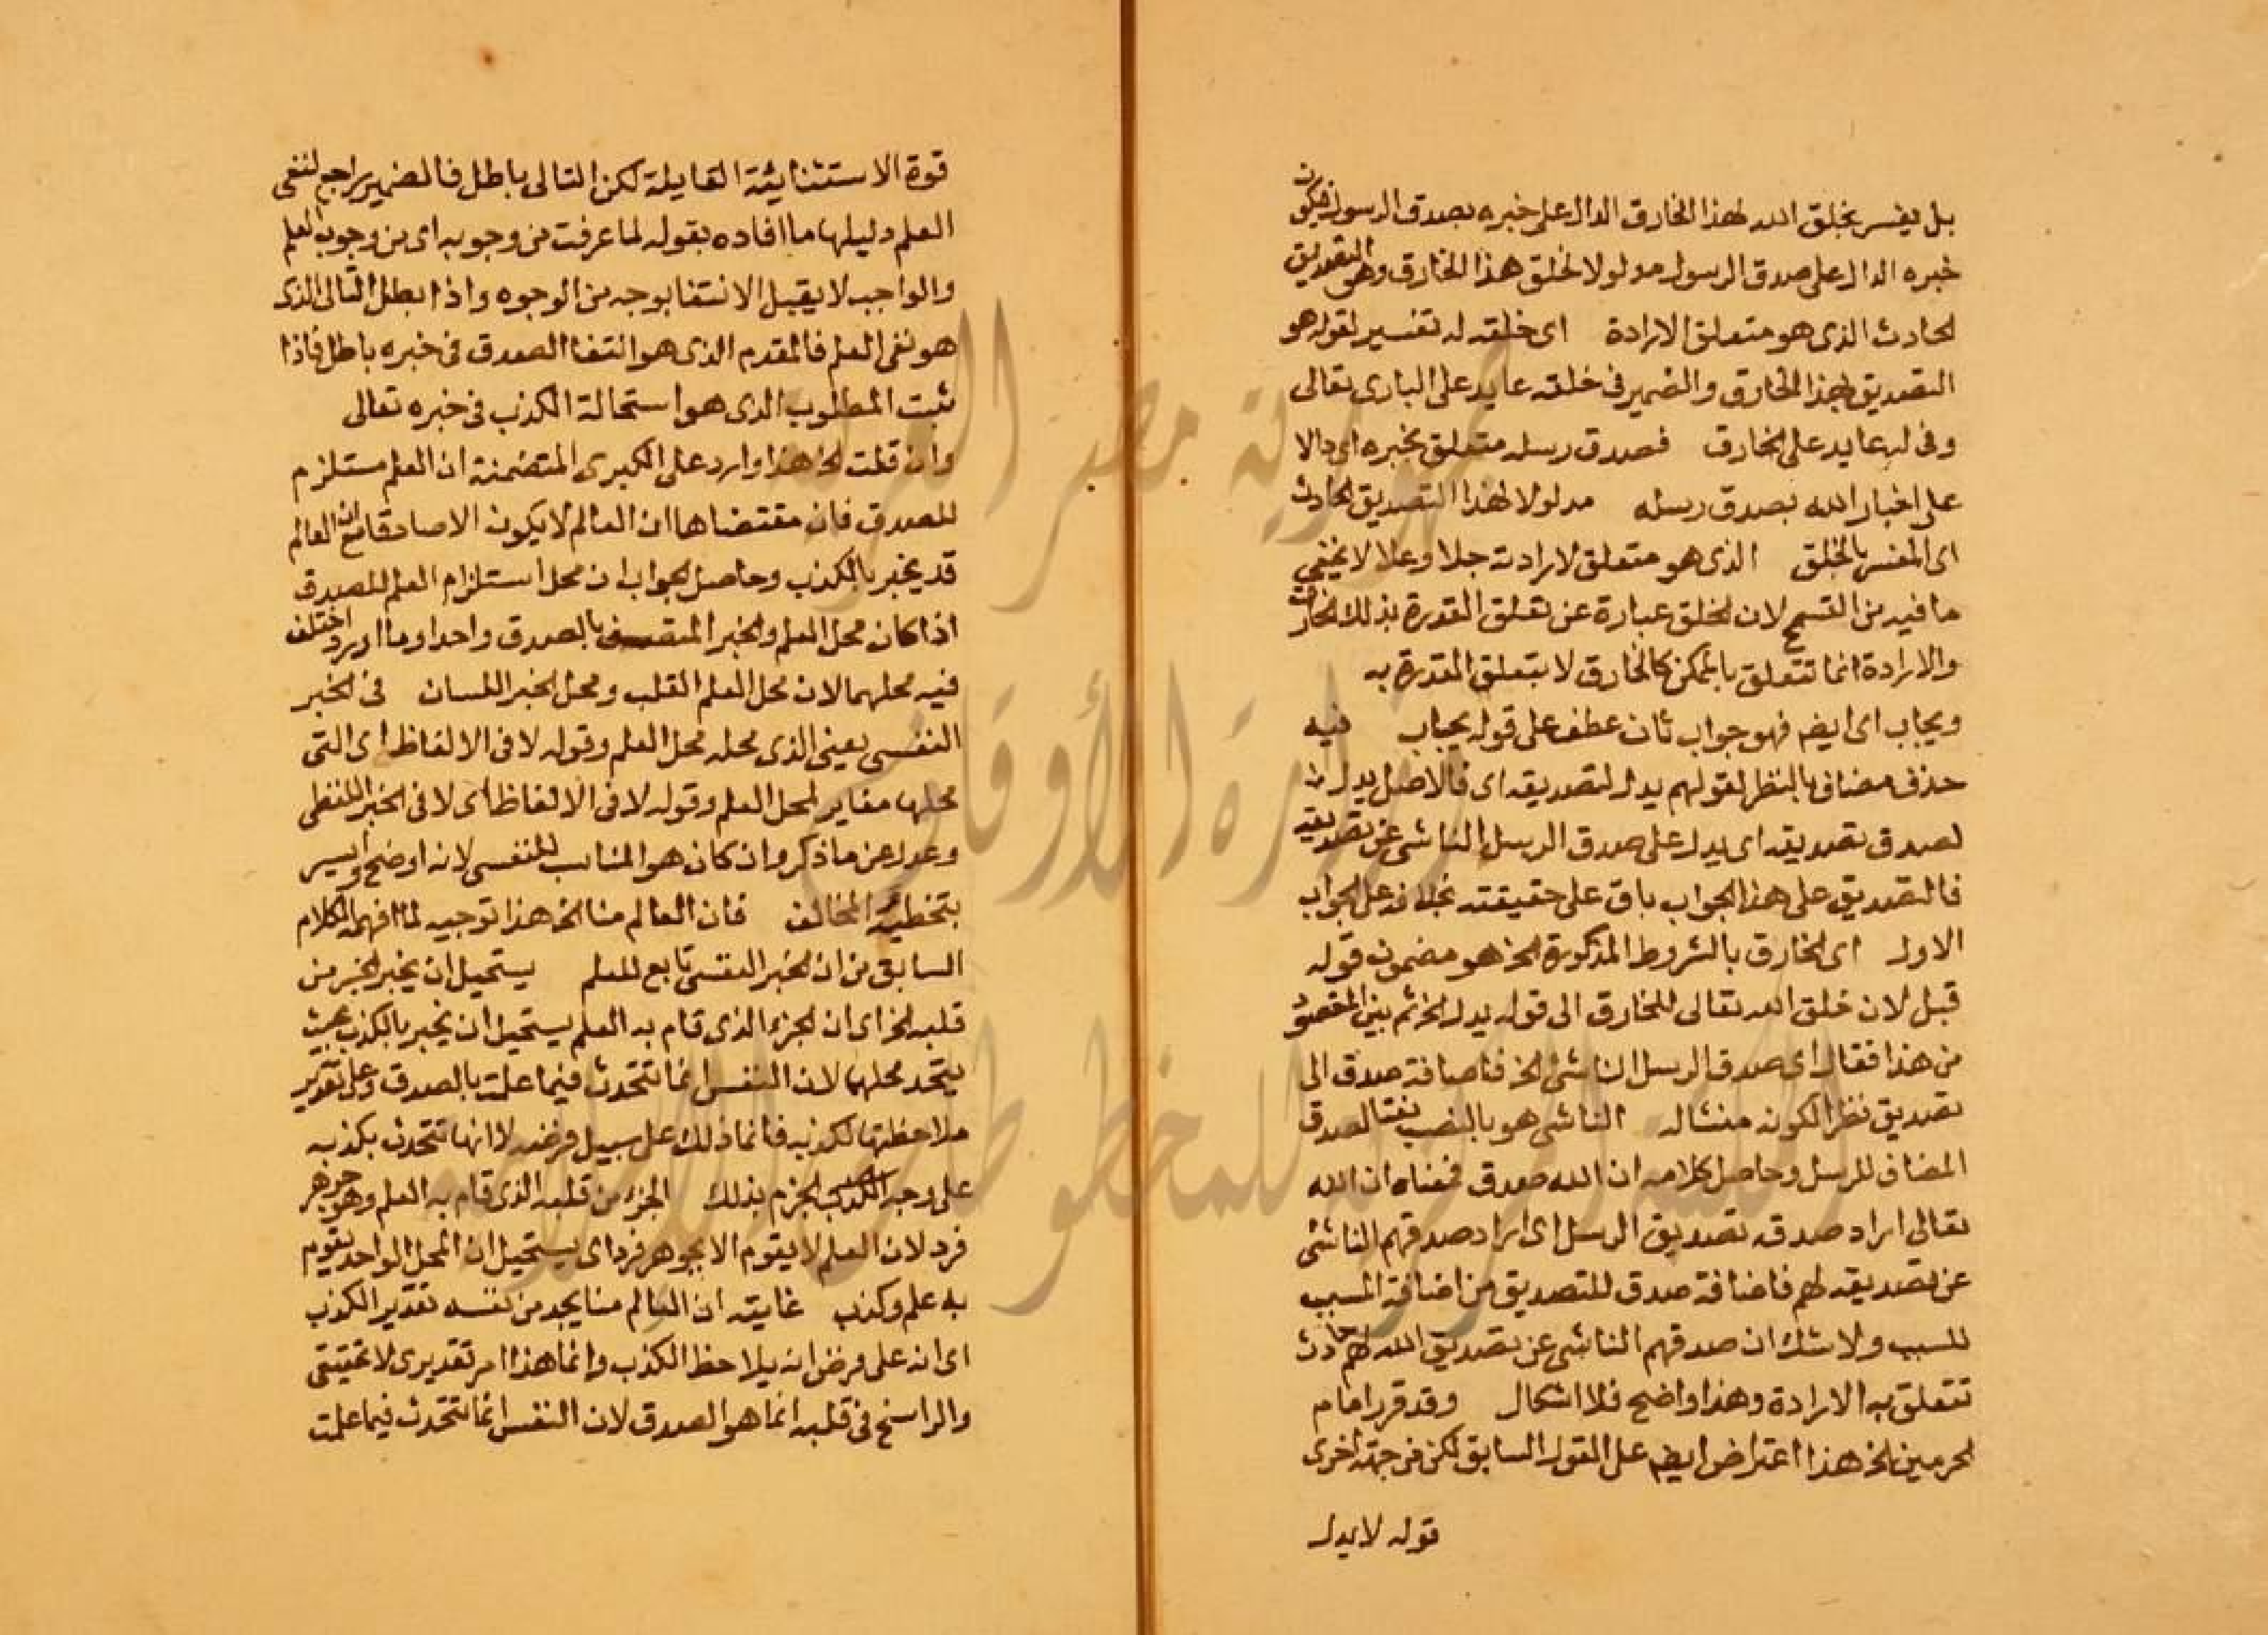 بل يفسر بخلق الله لهذا الخارق الدال على خبره بصدق الرسول فيكون
خبره الدال على صدق الرسول مدلولا لخلق هذا الخارق وهو التصديق
الحادث الذى هو متعلق الارادة اى خلقه له تفسير لقوله هو
التصديق بهذا الخارق والضمير فى خلقه عايد على البارى تعالى
وفى له عايد على الخارق فصدق رسله متعلق بخبره اى دالا
على اخبار الله بصدق رسله مدلولا لهذا التصديق الحادث
اى المفسر بالخلق الذى هو متعلق لارادته جلا وعلا لا يخفى
ما فيه من التسمح لان الخلق عبارة عن تعلق القدرة بذلك الخارق
والارادة انما تتعلق بالممكن كالخارق لا بتعلق القدرة به
ويجاب اى ايضم فهو جواب ثان عطف على قوله يجاب فيه
حذف مضاف بالنظر لقولهم يدل لتصديقه اى فالاصل يدل
لصدق تصديقه اى يدل على صدق الرسل الناشى عن تصديقه
فالتصديق على هذا الجواب باق على حقيقته بخلافه على الجواب
الاول اى الخارق بالشروط المذكورة الخ هو مضمون قوله
قبل لان خلق الله تعالى للخارق الى قوله يدل الخ ثم بين المقصود
من هذا فقال اى صدق الرسل الناشئ الخ فاضافة صدق الى
تصديق نظرا لكونه منشاله الناشى هو بالنصب نعت الصدق
المضاف للرسل وحاصل كلامه ان الله صدق فمعناه ان الله
تعالى اراد صدق تصديق الرسل اى اراد صدقهم الناشى
عن تصديقه لهم فاضافة صدق للتصديق من اضافة المسبب
للسبب ولا شك ان صدقهم الناشى عن تصديق الله لهم حادث
تتعلق به الارادة وهذا واضح فلا اشكال وقد قرر امام
الحرمين الخ هذا اعتراض ايضم على القول السابق لكن من جهة اخرى
قوله لا يدل
قوة الاستثنائية القايلة لكن التالى باطل فالضمير راجع لنفى
العلم دليلها ما افاده بقوله لما عرفت من وجوبه اى من وجوب العلم
والواجب لا يقبل الانتفا بوجه من الوجوه واذا بطل التالى الذى
هو نفى العلم فالمقدم الذى هو انتفا الصدق فى خبره باطل فاذا
ثبت المطلوب الذى هو استحالة الكذب فى خبره تعالى
وان قلت الخ هذا وارد على الكبرى المتضمنة ان العلم مستلزم
للصدق فان مقتضاها ان العالم لا يكون الا صادقا مع ان العالم
قد يخبر بالكذب وحاصل الجواب ان محل استلزام العلم للصدق
اذا كان محل العلم والخبر المتصف بالصدق واحدا وما اورد اختلف
فيه محلهما لان محل العلم القلب ومحل الخبر اللسان فى الخبر
النفسى يعنى الذى محله محل العلم وقوله لا فى الالفاظ اى التى
محلها مغاير لمحل العلم وقوله لا فى الالفاظ اى لا فى الخبر اللفظى
وعدل عن ما ذكر وان كان هو المناسب للنفسى لانه اوضح وايسر
بتخطية المخالف فان العالم منا الخ هذا توجيه لما افهمه الكلام
السابق من ان الخبر النفسى تابع للعلم يستحيل ان يخبر الجزء من
قلبه الخ اى ان الجزء الذى قام به العلم يستحيل ان يخبر بالكذب بحيث
يتحد محلهما لان النفس انما تتحدث فيما علمت بالصدق وعلى تقدير
ملاحظتها لكذبه فانما ذلك على سبيل فرضه لا انها تتحدث بكذبه
على وجه الجزم بذلك الجزء من قلبه الذى قام به العلم وهو جوهر
فرد لان العلم لا يقوم الا بجوهر فرد اى يستحيل ان المحل الواحد يقوم
به علم وكذب غايته ان العالم منا يجد من نفسه تقدير الكذب
اى انه على فرض انه يلاحظ الكذب وانما هذا امر تقديرى لا تحقيقى
والراسخ فى قلبه انما هو الصدق لان النفس انما تتحدث فيما علمت